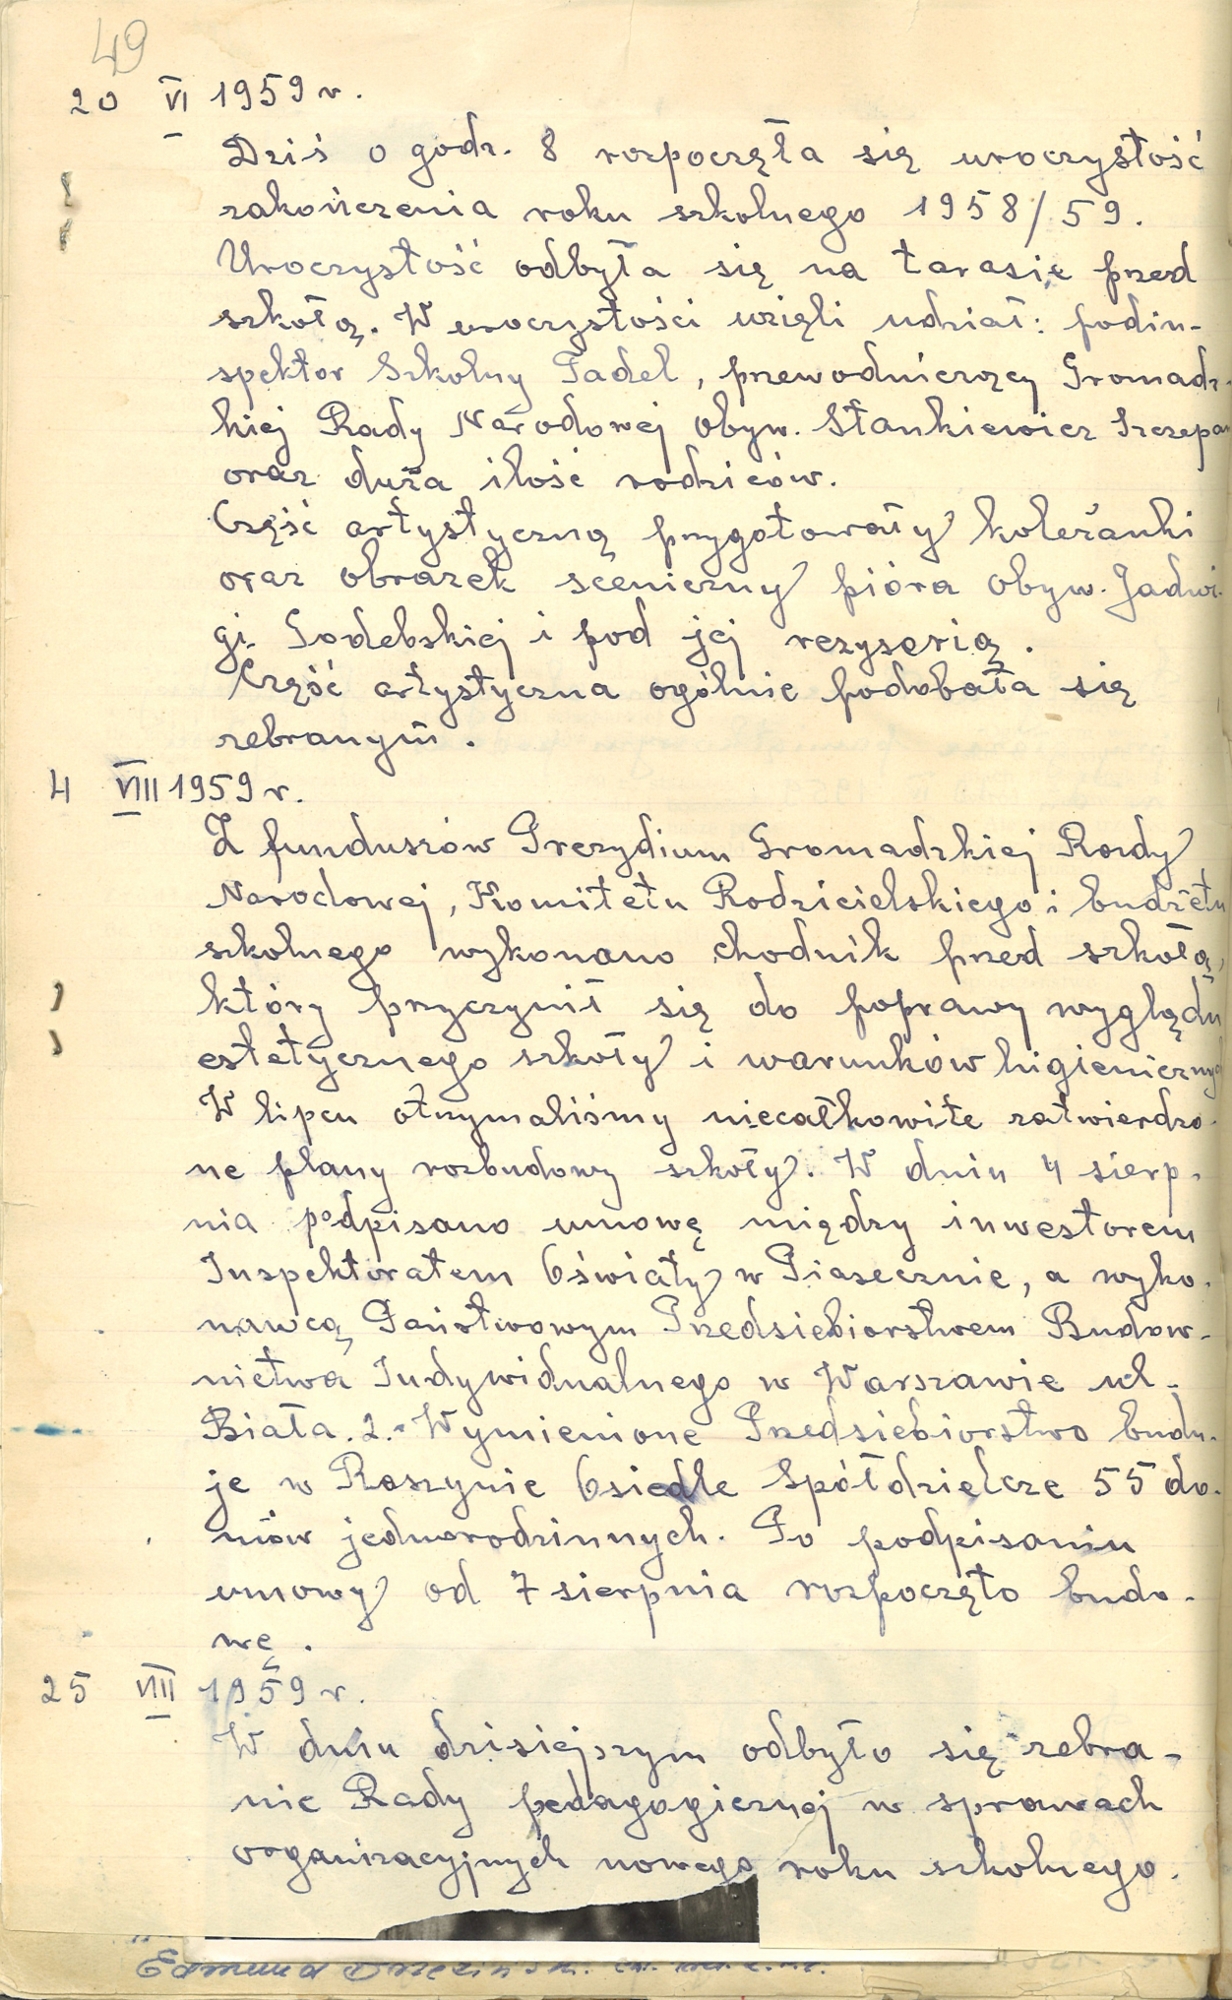 49
20 VI 1959 r.
Dziś o godz. 8 rozpoczęła się uroczystość
zakończenia roku szkolnego 1958/59.
Uroczystość odbyła się na tarasie przed
szkołą. W uroczystości wzięli udział: podin-
spektor Szkolny Padel, przewodniczący Gromadz-
kiej Rady Narodowej obyw. Stankiewicz Szczepan
oraz duża ilość rodziców.
Część artystyczną przygotowały koleżanki
oraz obrazek sceniczny pióra obyw. Jadwi-
gi Godebskiej i pod jej reżyserią.
Część artystyczna ogólnie podobała się
zebranym.
4 VIII 1959 r.
Z funduszów Prezydium Gromadzkiej Rady
Narodowej, Komitetu Rodzicielskiego i budżetu
szkolnego wykonano chodnik przed szkołą,
który przyczynił się do poprawy wyglądu
estetycznego szkoły i warunków higienicznych
W lipcu otrzymaliśmy niecałkowite zatwierdzo-
ne plany rozbudowy szkoły. W dniu 4 sierp-
nia podpisano umowę między inwestorem
Inspektoratem Oświaty w Piasecznie, a wyko-
nawcą Państwowym Przedsiebiorstwem Budow-
nictwa Indywidualnego w Warszawie ul.
Biała 2. Wymienione Przedsiebiorstwo budu-
je w Raszynie Osiedle Spółdzielcze 55 do-
mów jednorodzinnych. Po podpisaniu
umowy od 7 sierpnia rozpoczęto budo-
wę.
25 VIII 1959 r.
W dniu dzisiejszym odbyło się zebra-
nie Rady pedagogicznej w sprawach
organizacyjnych nowego roku szkolnego.
Edmund